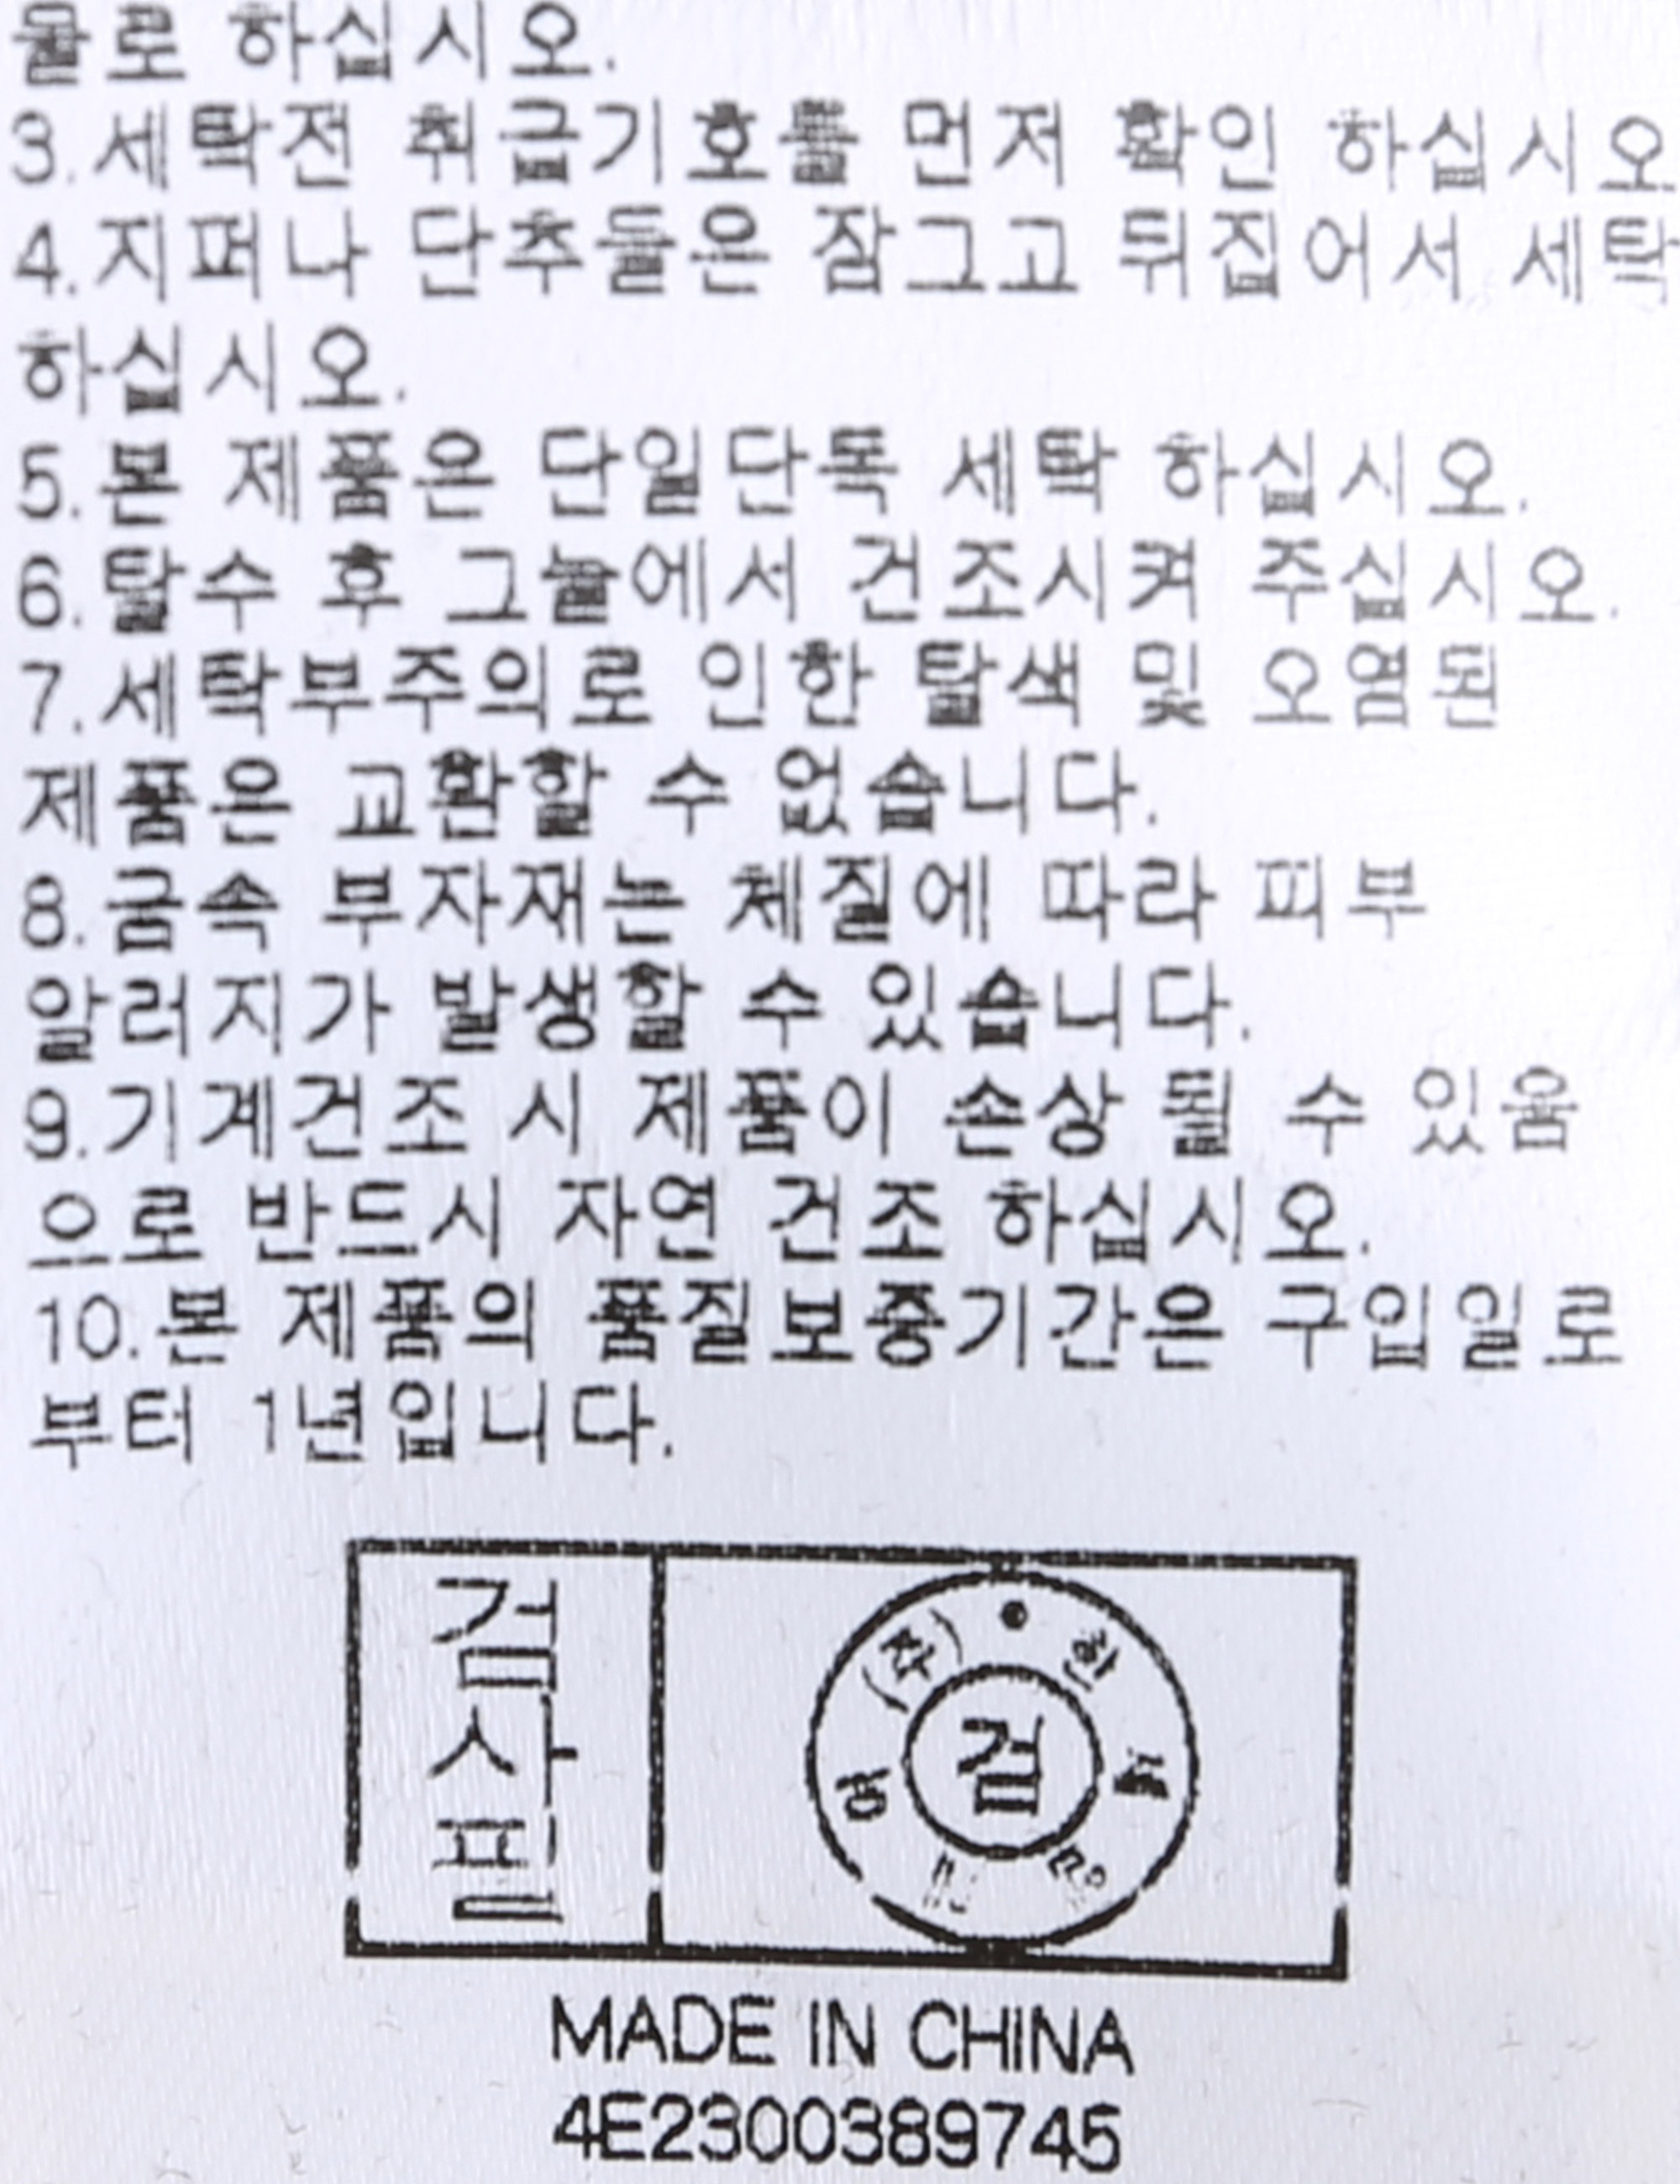 물로 하십시오.
3.세탁전 취급기호를 먼저 확인 하십시오
4.지퍼나 단추들은 잠그고 뒤집어서 세탁
하십시오.
5.본 제품은 단일단독 세탁 하십시오.
6.탈수 후 그늘에서 건조시켜 주십시오.
7.세탁부주의로 인한 탈색 및 오염된
제품은 교환할 수 없습니다.
8.금속 부자재는 체질에 따라 피부
알러지가 발생할 수 있습니다.
9.기계건조 시 제품이 손상 될 수 있음
으로 반드시 자연 건조 하십시오.
10.본 제품의 품질보증기간은 구입일로
부터 1년입니다.
검사필
(주)한세
검
MADE IN CHINA
4E2300389745